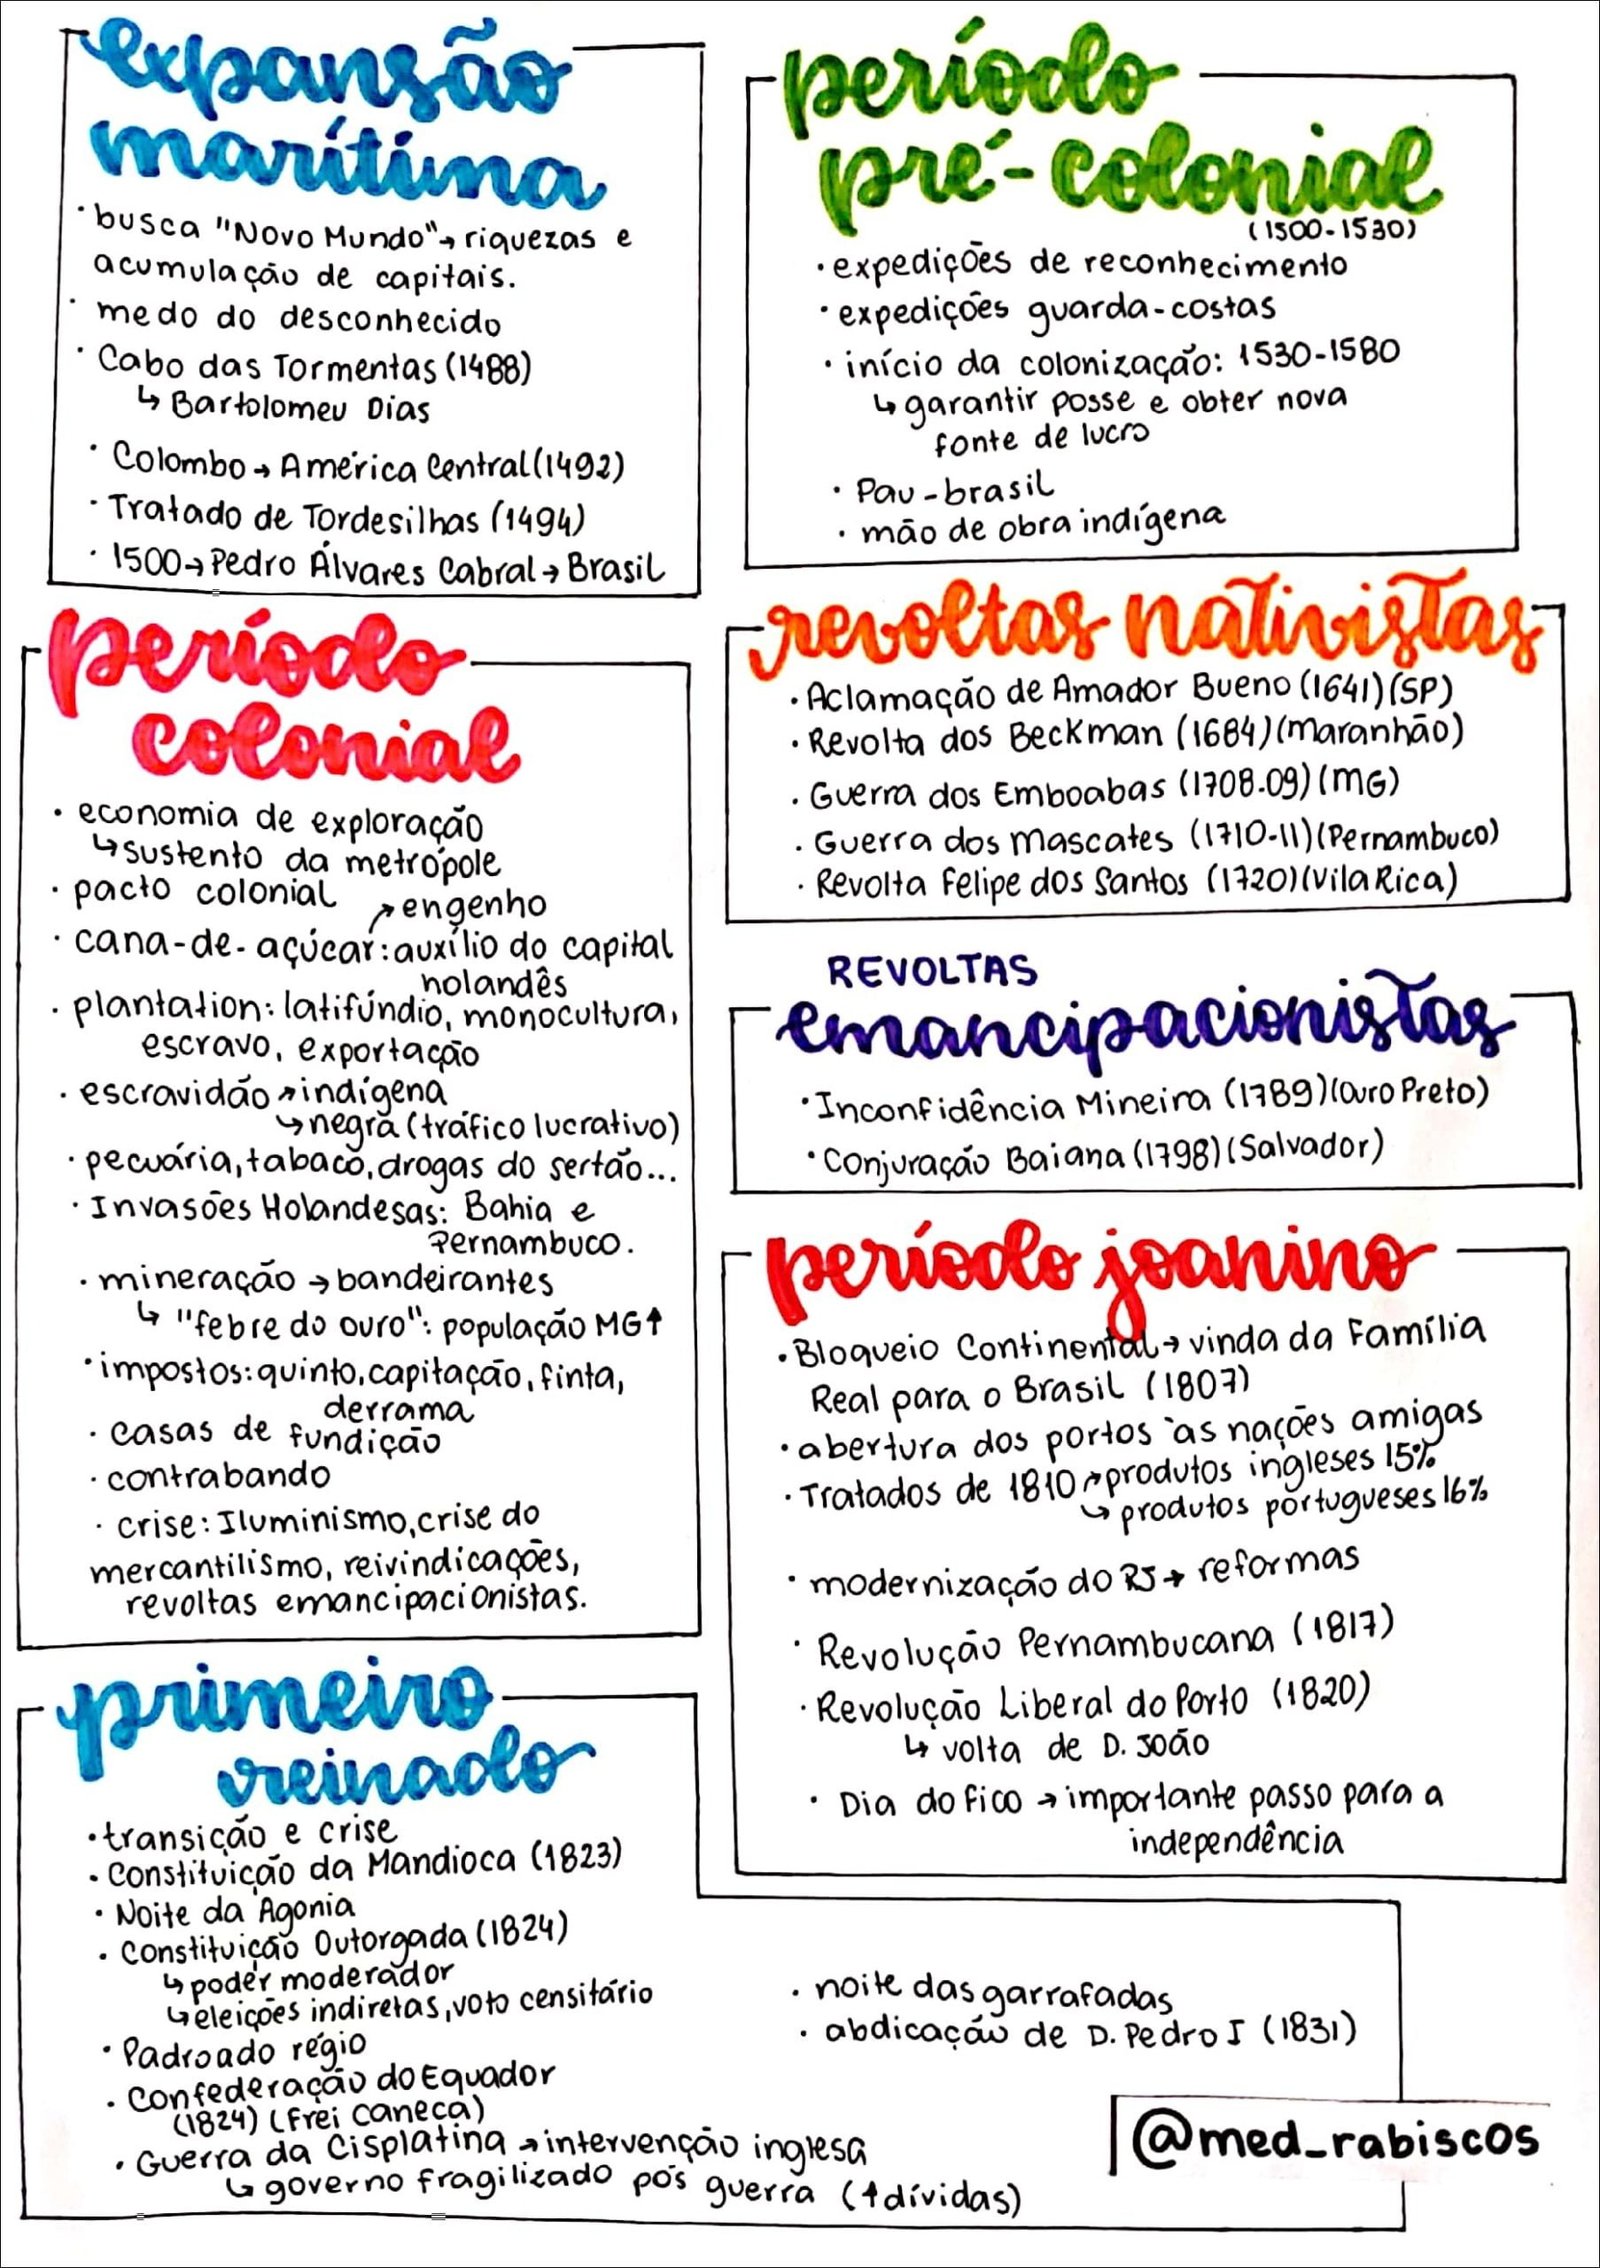 expansão
marítima
· busca "Novo Mundo"→ riquezas e
acumulação de capitais.
· medo do desconhecido
· Cabo das Tormentas (1488)
↳ Bartolomeu Dias
· Colombo → América Central (1492)
· Tratado de Tordesilhas (1494)
· 1500 → Pedro Álvares Cabral → Brasil
período
pré-colonial
(1500-1530)
· expedições de reconhecimento
· expedições guarda-costas
· início da colonização: 1530-1580
↳ garantir posse e obter nova
fonte de lucro
· Pau-brasil
· mão de obra indígena
período
colonial
· economia de exploração
↳ sustento da metrópole
· pacto colonial
↗ engenho
· cana-de-açúcar: auxílio do capital
holandês
· plantation: latifúndio, monocultura,
escravo, exportação
· escravidão ↗ indígena
↳ negra (tráfico lucrativo)
· pecuária, tabaco, drogas do sertão...
· Invasões Holandesas: Bahia e
Pernambuco.
· mineração → bandeirantes
↳ "febre do ouro": população MG ↑
· impostos: quinto, capitação, finta,
derrama
· casas de fundição
· contrabando
· crise: Iluminismo, crise do
mercantilismo, reivindicações,
revoltas emancipacionistas.
revoltas nativistas
· Aclamação de Amador Bueno (1641) (SP)
· Revolta dos Beckman (1684) (Maranhão)
· Guerra dos Emboabas (1708-09) (MG)
· Guerra dos Mascates (1710-11) (Pernambuco)
· Revolta Felipe dos Santos (1720) (Vila Rica)
REVOLTAS
emancipacionistas
· Inconfidência Mineira (1789) (Ouro Preto)
· Conjuração Baiana (1798) (Salvador)
período joanino
· Bloqueio Continental → vinda da Família
Real para o Brasil (1807)
· abertura dos portos às nações amigas
· Tratados de 1810 ↗ produtos ingleses 15%
↳ produtos portugueses 16%
· modernização do RJ → reformas
· Revolução Pernambucana (1817)
· Revolução Liberal do Porto (1820)
↳ volta de D. João
· Dia do Fico → importante passo para a
independência
primeiro
reinado
· transição e crise
· Constituição da Mandioca (1823)
· Noite da Agonia
· Constituição Outorgada (1824)
↳ poder moderador
↳ eleições indiretas, voto censitário
· Padroado régio
· Confederação do Equador
(1824) (Frei Caneca)
· Guerra da Cisplatina → intervenção inglesa
↳ governo fragilizado pós guerra (↑ dívidas)
· noite das garrafadas
· abdicação de D. Pedro I (1831)
@med_rabiscos